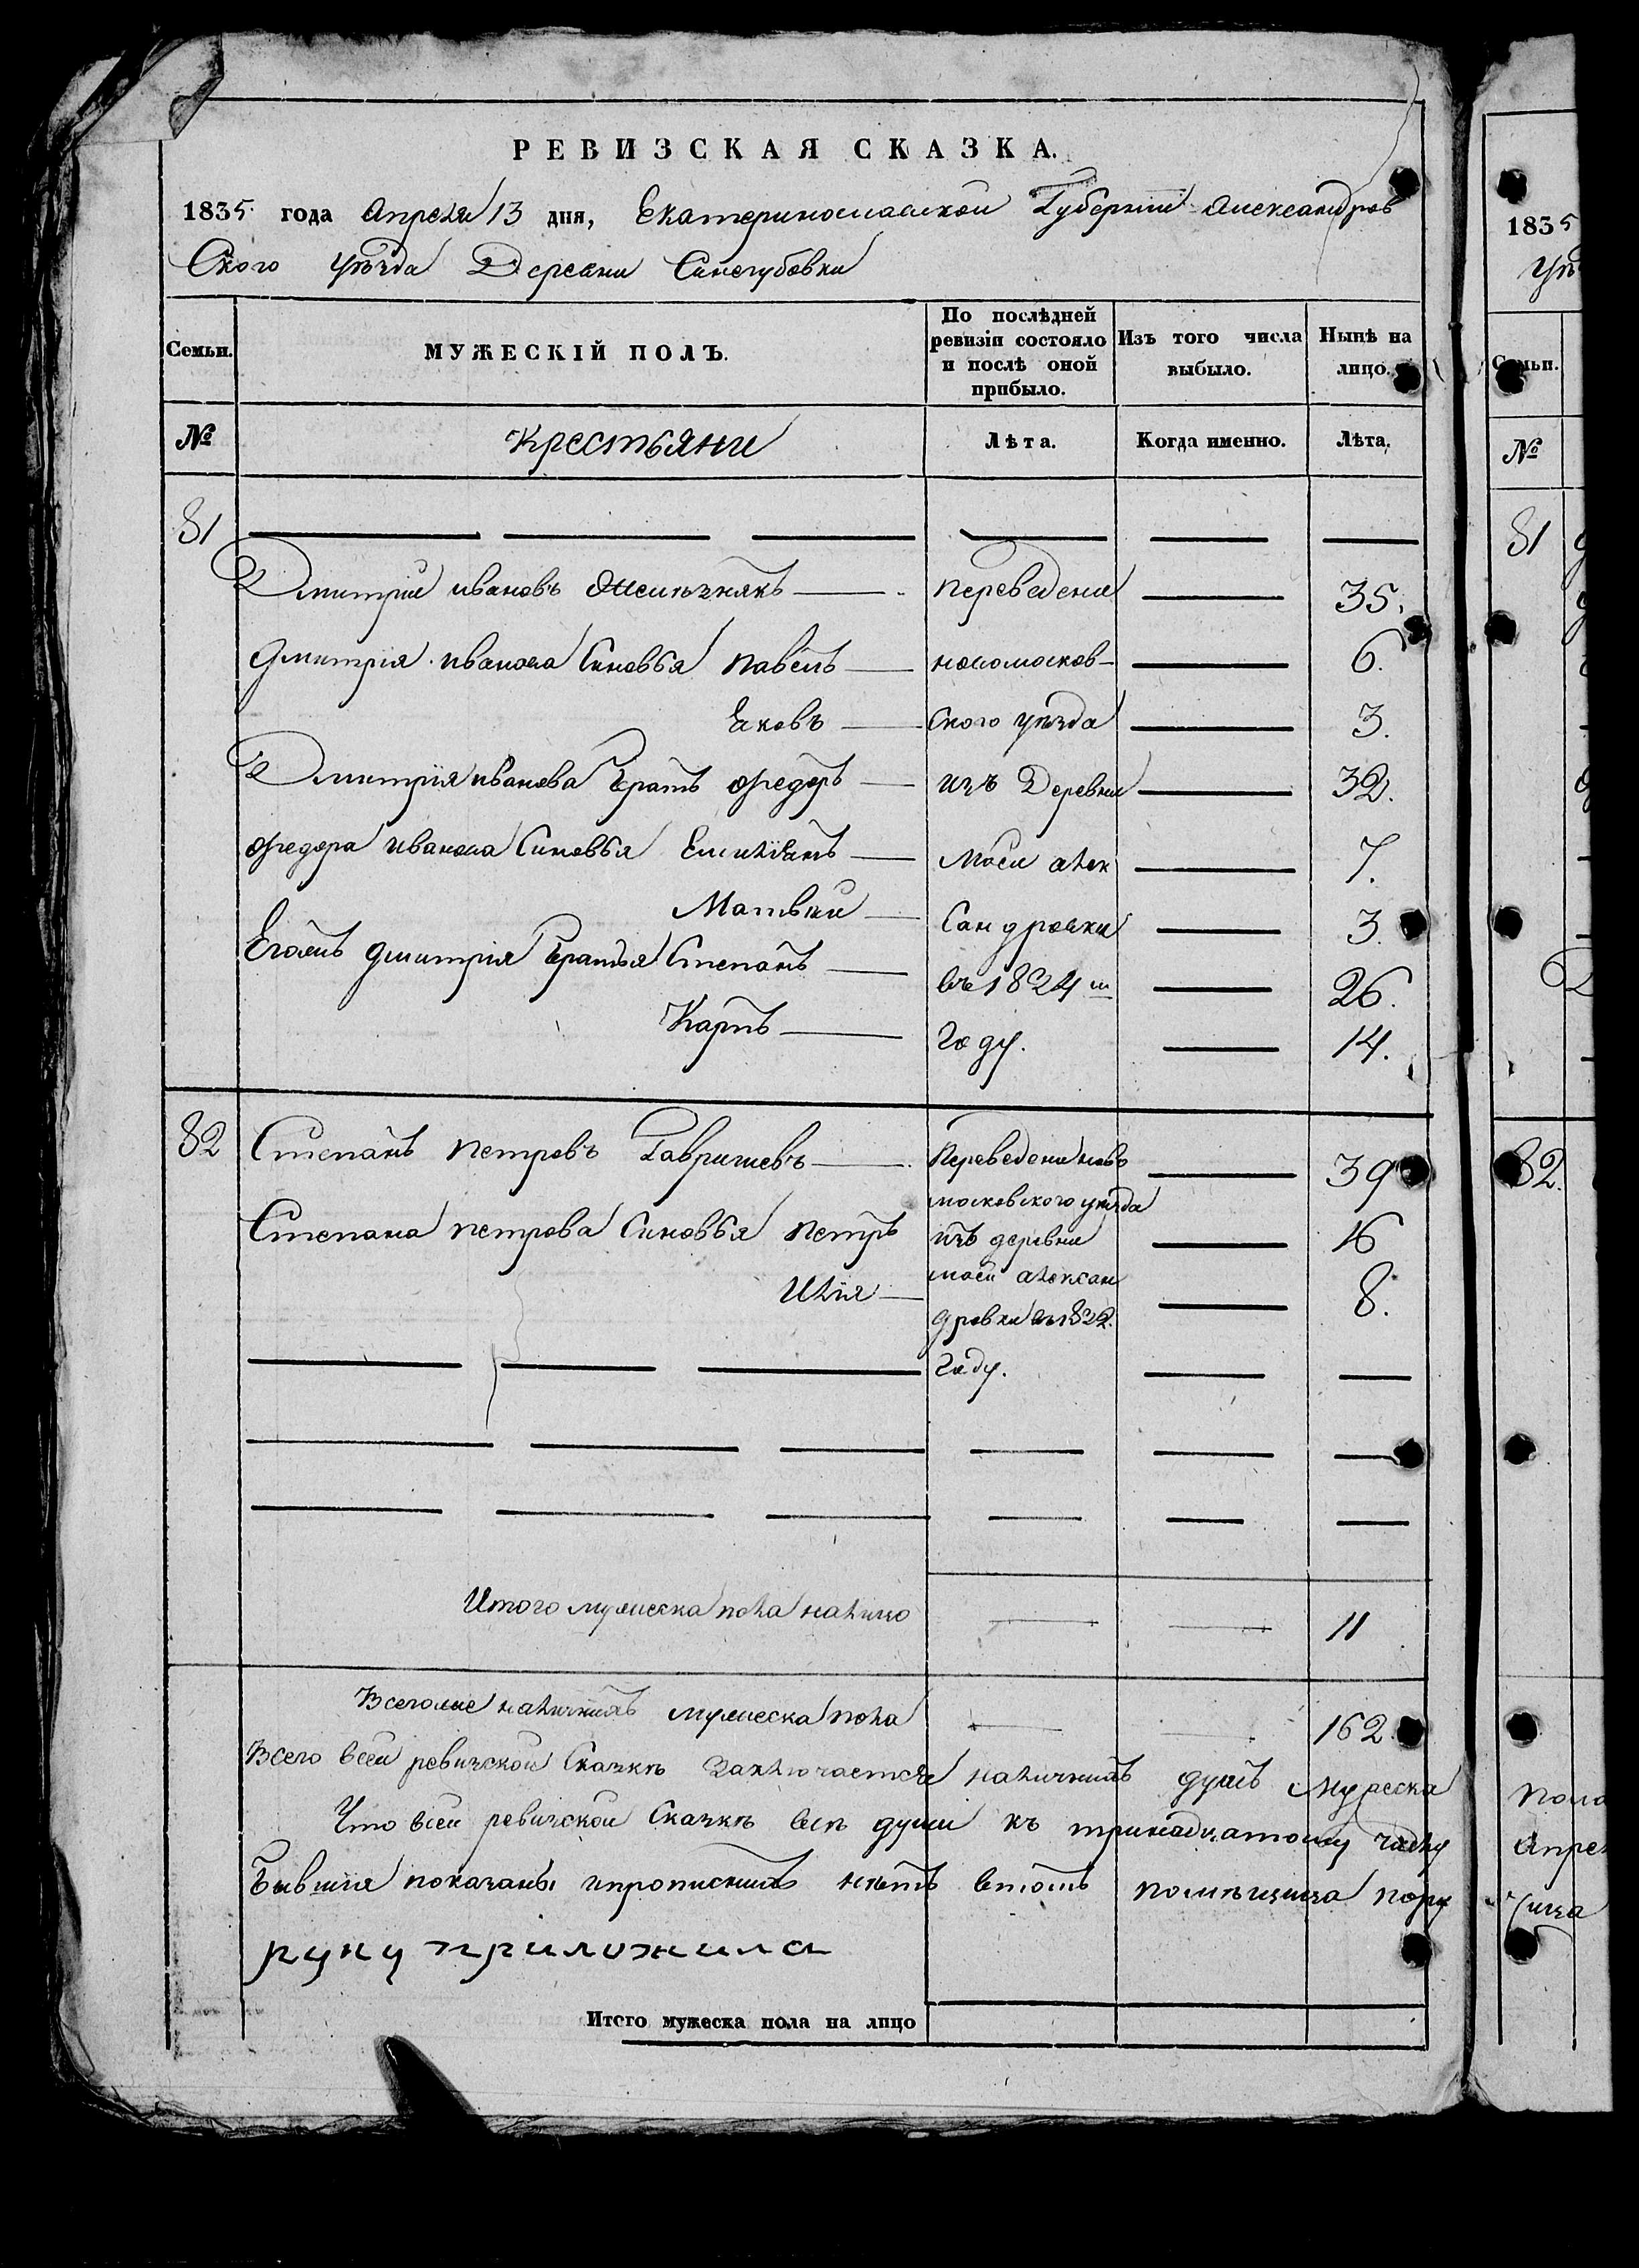 РЕВИЗСКАЯ СКАЗКА.
1835 года Апреля 13 дня, Екатеринославской Губернии Александров
Ского уѣзда Деревни Синегубовки
Семьи.
МУЖЕСКІЙ ПОЛЪ.
По послѣдней ревизіи состояло и послѣ оной прибыло.
Изъ того числа выбыло.
Нынѣ на лицо.
№ Крестьяне Лѣта. Когда именно. Лѣта.
81
Дмитрій ивановъ — переведени — 35.
Дмитрія иванова Синовья павелъ — новомосков- — 6.
Ековъ — ского уѣзда — 3.
Дмитрія иванова Братъ Федоръ — изъ Деревни — 32.
Федора иванова Синовья Емилианъ — Моей алек — 7.
Матвѣй — Сандровки — 3.
Его жъ Дмитрія Братья Степанъ — въ 1824 м — 26.
Карпъ — году. — 14.
82 Степанъ петровъ Гавришевъ — переведени ново — 39
московского уѣзда
Степана петрова Синовья петръ изъ деревни — 16
Илія — моей алексан — 8.
дровки въ 1822.
году.
Итого мужеска пола налицо — — 11
Всего же наличнихъ мужеска пола — — 162.
Всего всей ревизской Сказкѣ заключается наличнихъ душъ мужеска
Что всей ревизской Сказкѣ всѣ души къ тринадцатому числу
Бывшія показаны ипрописнихъ нѣтъ втомъ помѣщица пору
руку приложила
Итого мужеска пола на лицо
1835
уѣ
Семьи.
№
81
82.
пола
Апрел